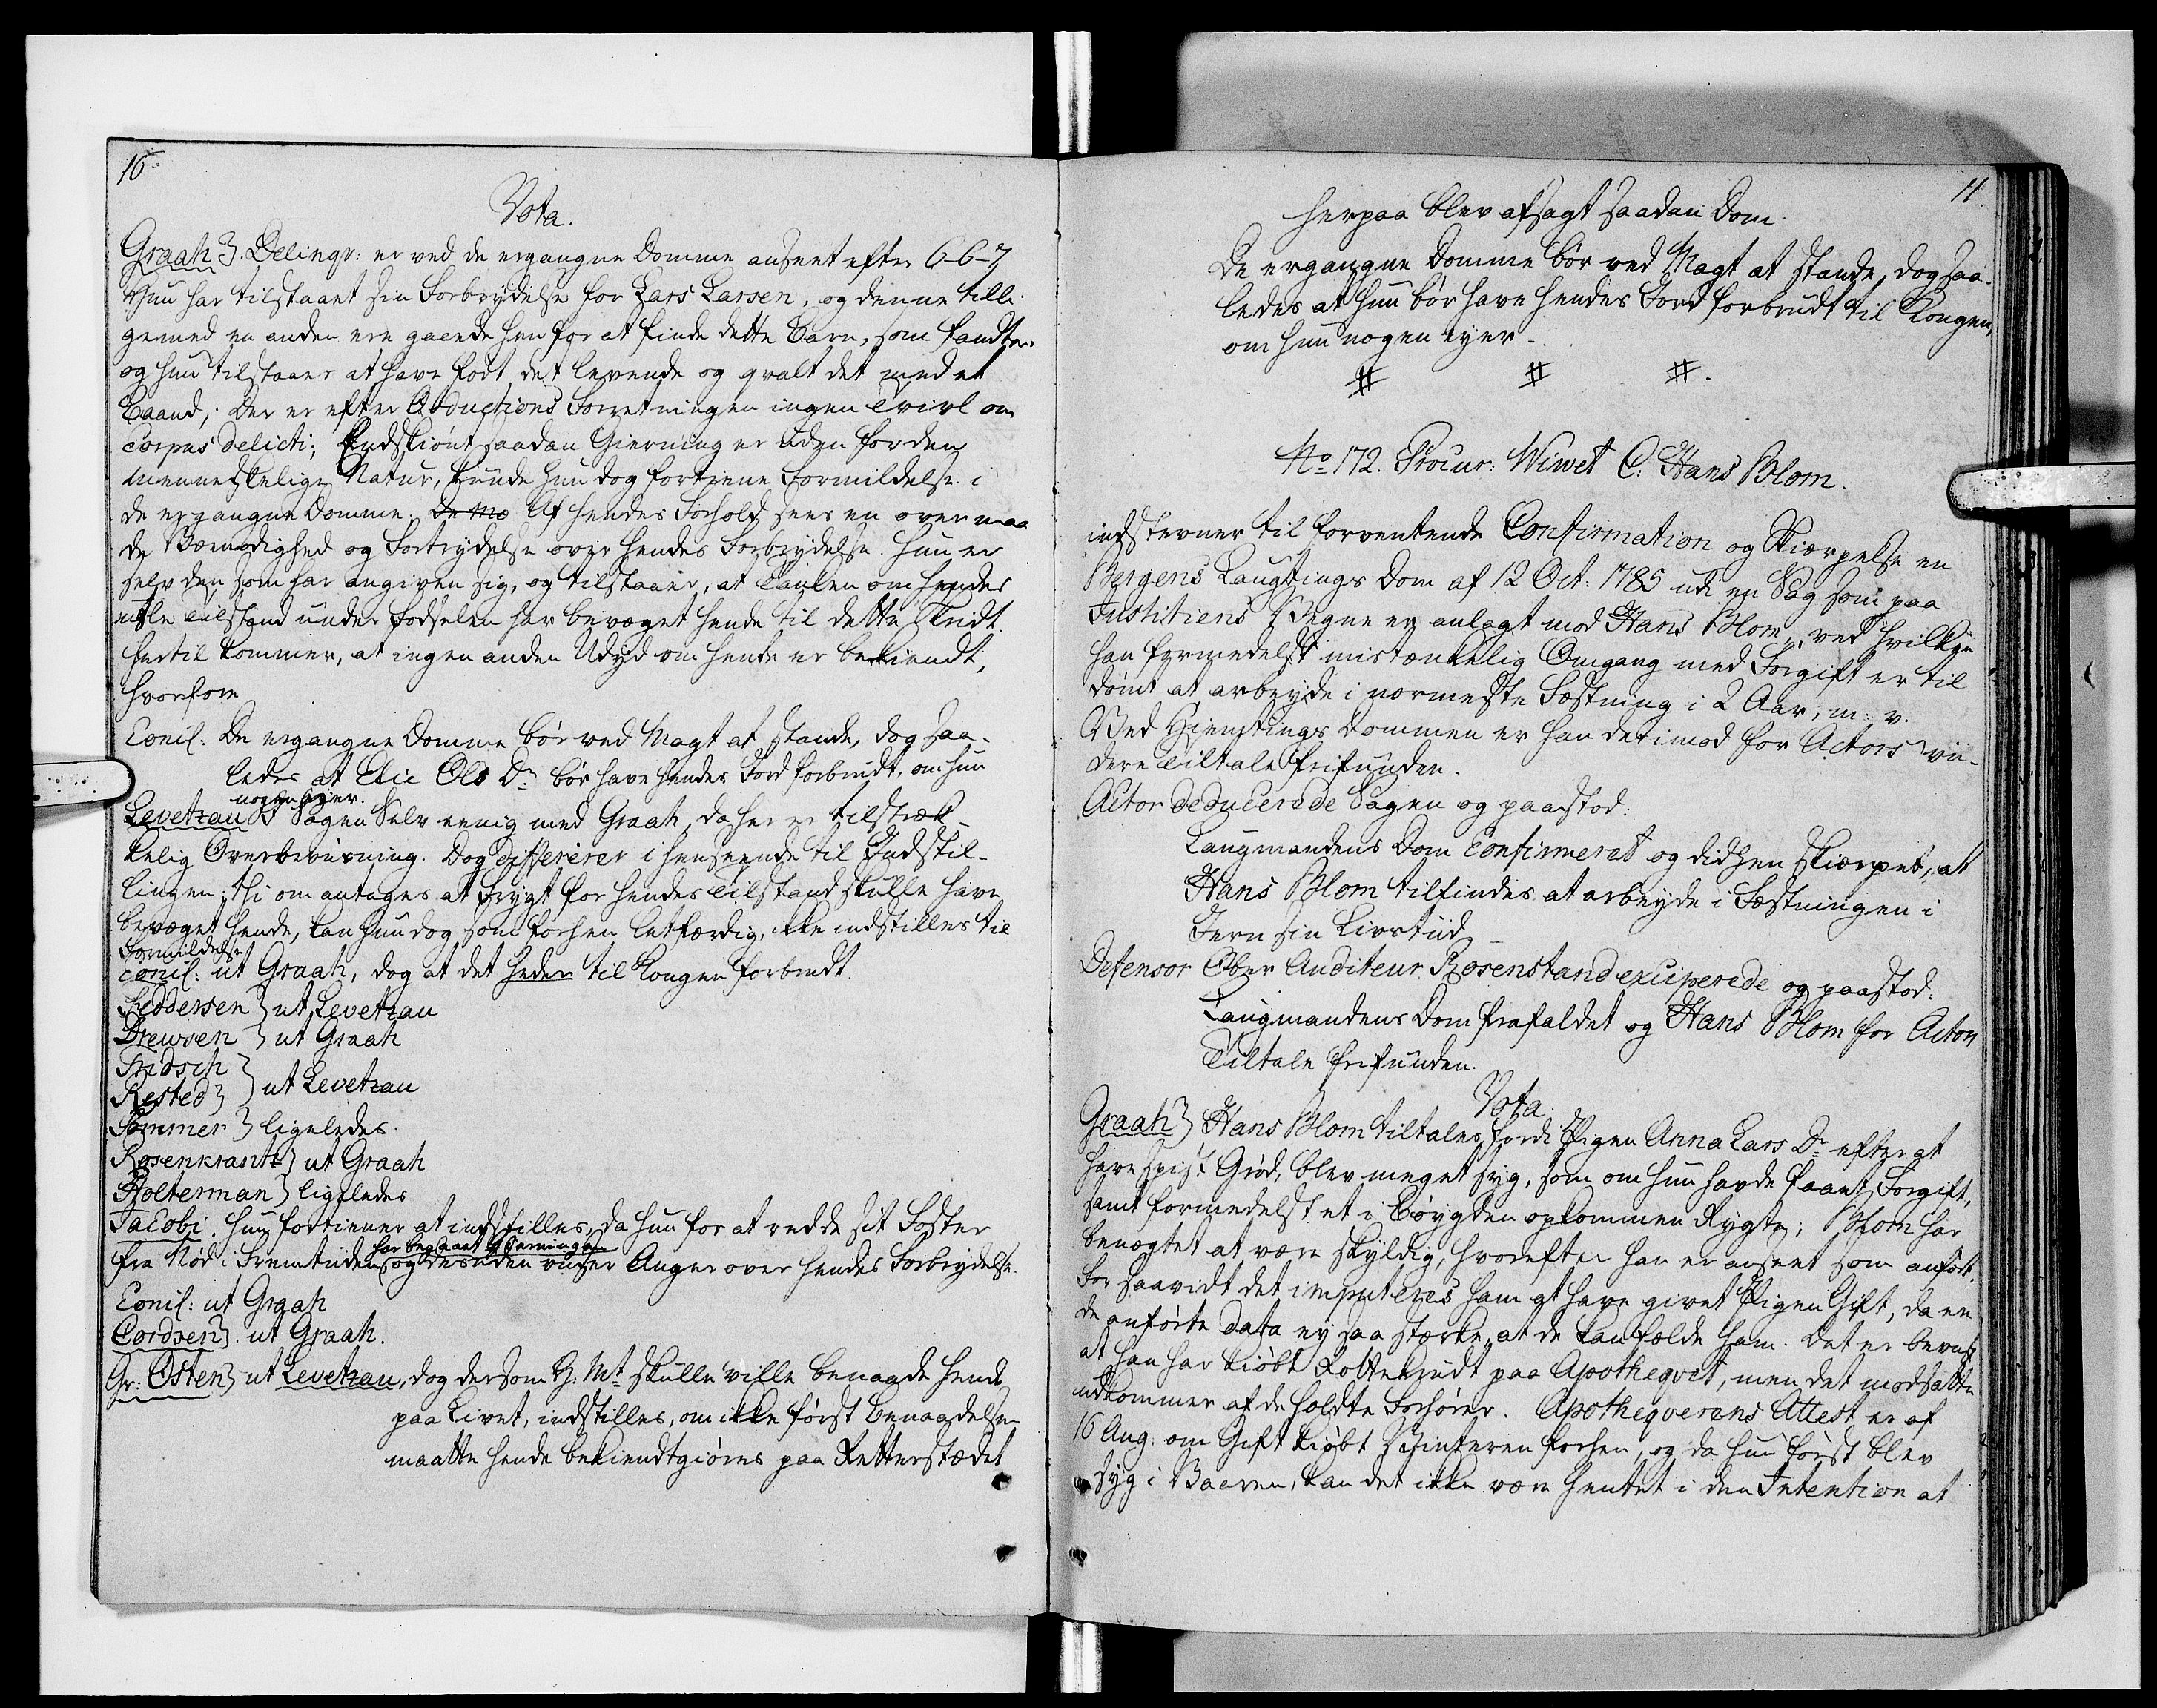 10
Vota.
Graah}. Delinqv: er ved de ergangne Domme anseet efter 6-6-7
Hun har tilstaaet sin Forbrydelse for Lars Larsen, og denne tilli-
gemed en anden ere gaaede hen for at finde dette Barn, som fandtes
og hun tilstaaer at have født det levende og qvalt det med et
Baand, der er efter Obductions Forretningen ingen Tvivl om
Corpus delicti; Endskiønt saadan Gierning er uden for den
menneskelige Natur, kunde hun dog fortiene Formildelse i
de ergangne Domme. De mo Af hendes Forhold sees en overmaa
de Vemodighed og Fortrydelse over hendes Forbrydelse. Hun er
selv den som har angiven sig, og tilstaaer, at Tanken om hendes
usle Tilstand under Fødselen har bevæget hende til dette Skridt.
hertil kommer, at ingen anden Udyd om hende er bekiendt,
hvorfore
Concl: De ergangne Domme bør ved Magt at stande, dog saa-
ledes at Elie Ols Dr bør have hendes Jord forbrudt, om hun
nogen eyer.
Levetzau} I Sagen Selv eenig med Graah, da her er tilstræk-
kelig Overbeviisning. Dog differerer i henseende til Indstil-
lingen; thi om antages at Frygt for hendes Tilstand skulle have
bevæget hende, kan hun dog som forhen letfærdig, ikke indstilles til
Formildelse
Concl: ut Graah, dog at det heder til Kongen forbrudt.
Feddersen} ut Levetzau
Drewsen} ut Graah
Fridsch}
Rested} } ut Levetzau
Sommer} ligeledes.
Rosenkrantz} ut Graah
Holterman} ligeledes
Jacobi. Hun fortiener at indstilles, da hun for at redde sit Foster
fra Nød i Fremtiiden har begaaet Gierningen og desuden viiser Anger over hendes Forbrydelse.
Concl: ut Graah
Cordsen}. ut Graah.
Gr: Osten} ut Levetzau, dog dersom H: Mt skulle ville benaade hende
paa Livet, indstilles, om ikke først Benaadelsen
maatte hende bekiendtgiøres paa Retterstædet
11.
Herpaa blev afsagt saadan Dom.
De ergangne Domme bør ved Magt at stande, dog saa-
ledes at hun bør have hendes Jord forbrudt til Kongen,
om hun nogen eyer.
# # #.
No 172. Procur: Wiwet C: Hans Blom.
indstevner til forventende Confirmation og Skiærpelse en
Bergens Laugtings Dom af 12 Oct: 1785 udi en Sag som paa
Justitiens Vegne er anlagt mod Hans Blom, ved hvilken
han formedelst mistænkelig Omgang med Forgift er til
dømt at arbeyde i nærmeste Fæstning i 2 Aar, m: v.
Ved Hiemtings Dommen er han derimod for Actors vii-
dere Tiltale frifunden.
Actor deducerede Sagen og paastod:
Laugmandens Dom confirmeret og didhen skiærpet, at
Hans Blom tilfindes at arbeyde i Fæstningen i
Jern sin Livstiid
Defensor Ober Auditeur Rosenstand exciperede og paastod:
Laugmandens Dom frafaldet og Hans Blom for Actors
Tiltale frifunden.
Vota.
Graah} Hans Blom tiltales, fordi Pigen Anna Lars Dr efter at
have spist Grød, blev meget syg, som om hun havde faaet Forgift,
samt formedelst et i Bøygden opkommen Rygte; Blom har
benægtet at være skyldig, hvorefter han er anseet som anført.
For saavidt det imputeres ham at have givet Pigen Gift, da ere
de anførte data ey saa stærke, at de kan fælde ham. Det er beviist
at han har kiøbt Rottekrudt paa Apotheqvet, men det modsatte
udkommer af de holdte Forhører. Apotheqverens Attest er af
16 Aug. om Gift kiøbt Vinteren forhen, og da hun først blev
syg i Vaaren, kan det ikke være hentet i den Intention at